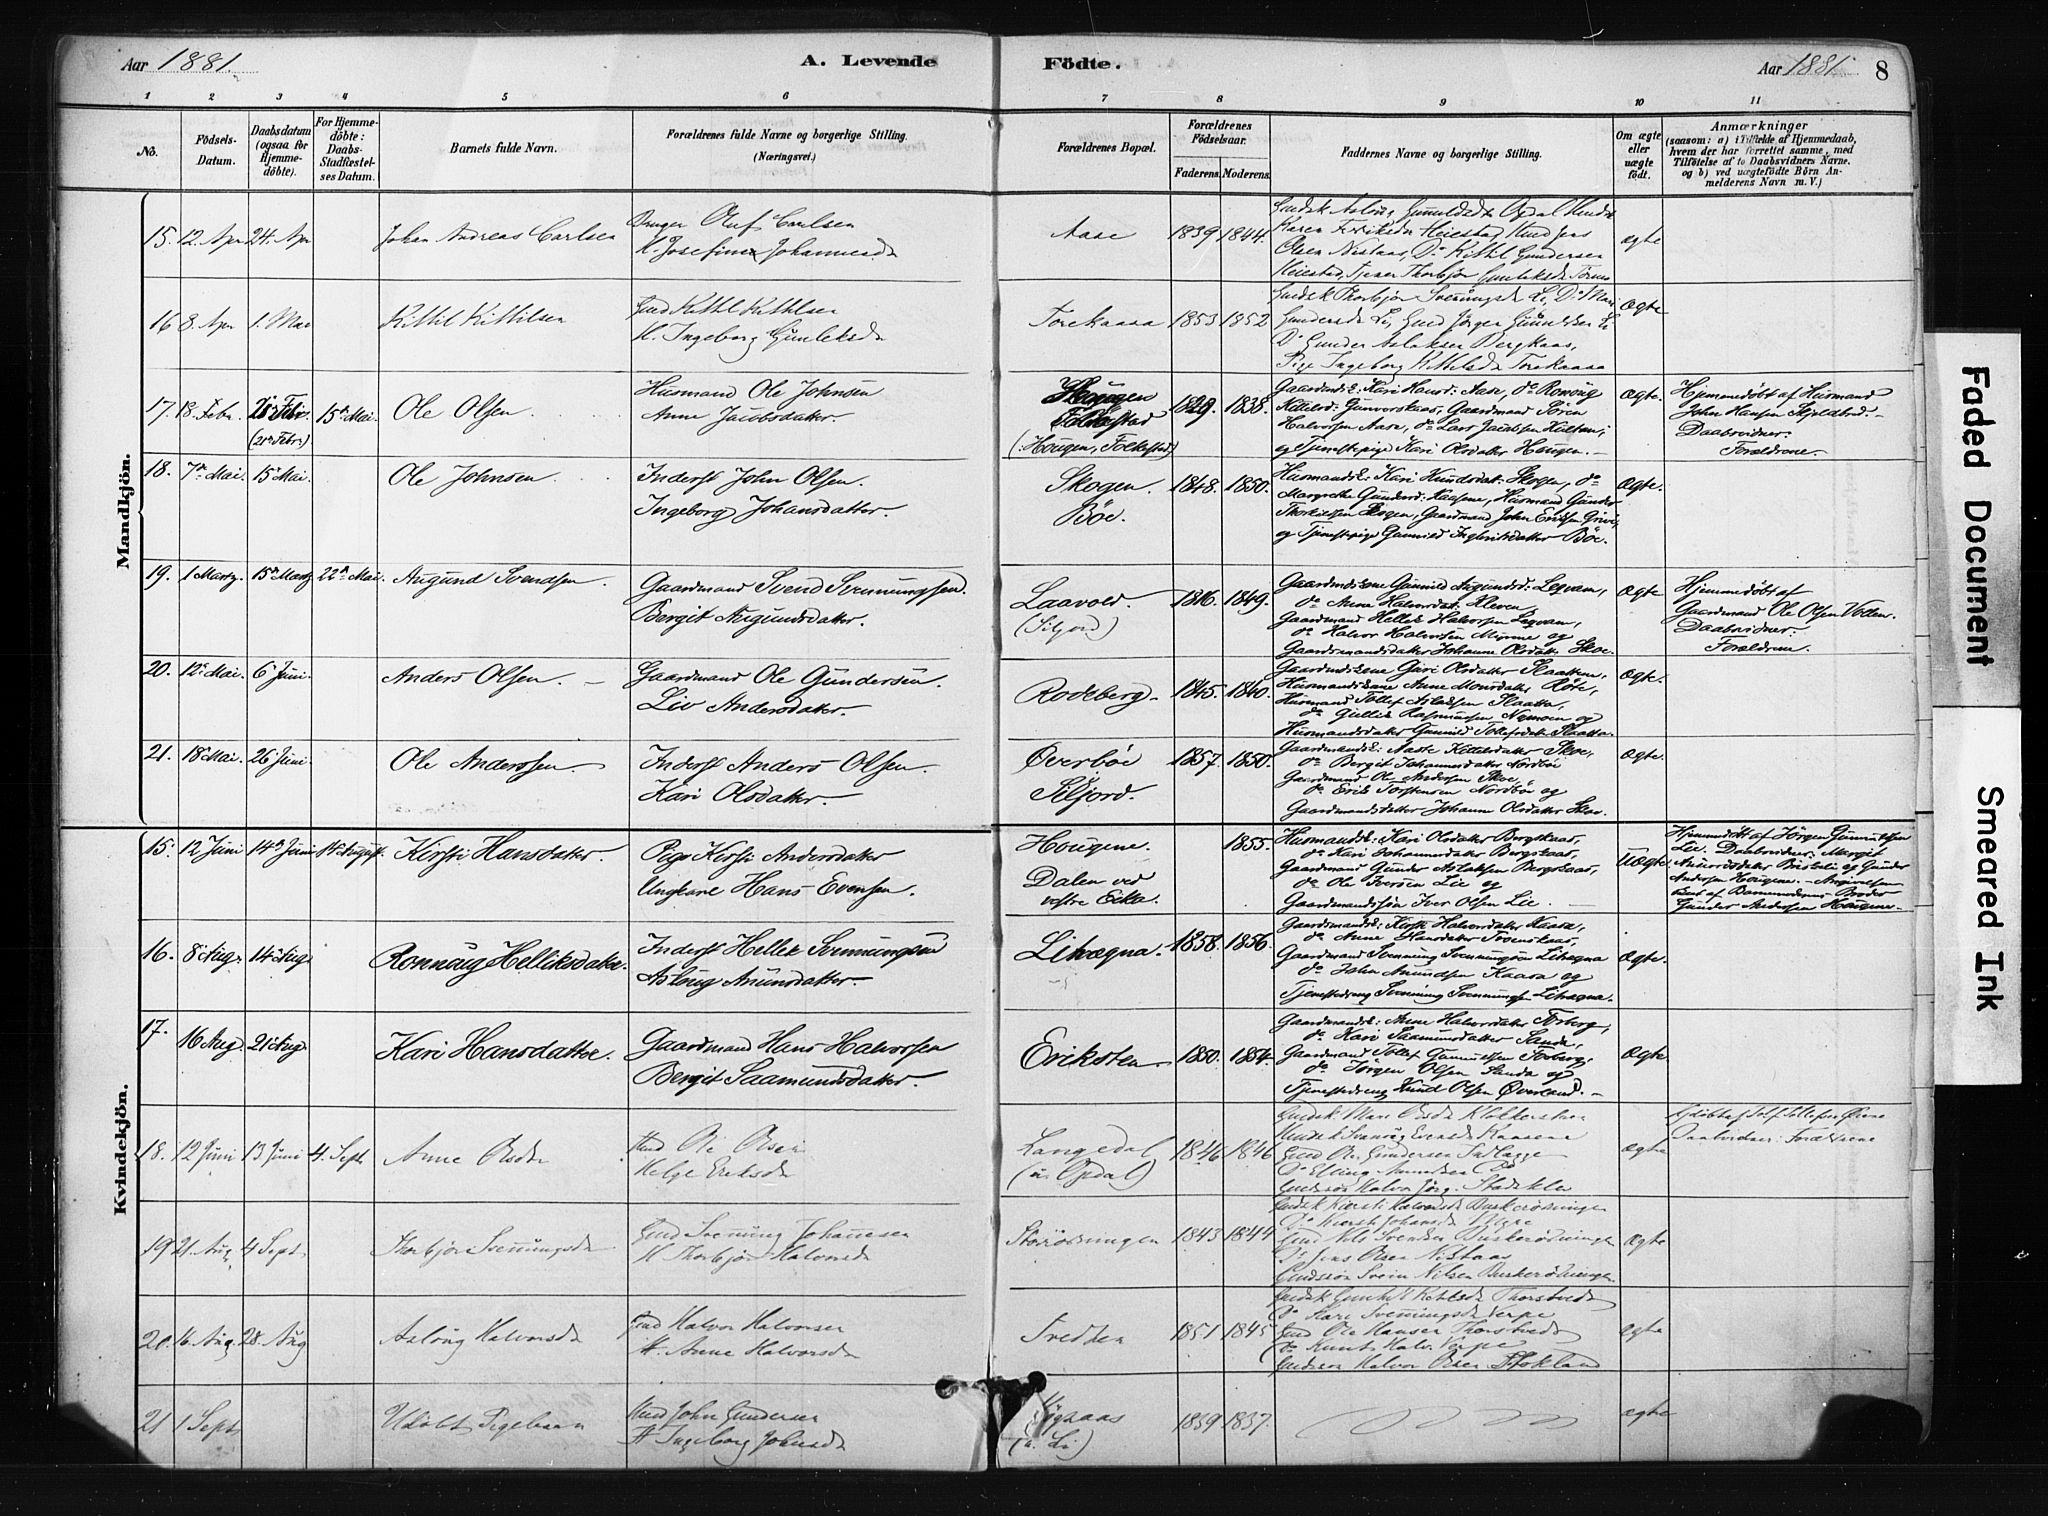 Aar 1881.
A. Levende
Födte.
Aar 1881
8
1 2 3 4 5 6 7 8 9 10 11
No.
Födsels-
Datum.
Daabsdatum
(ogsaa for
Hjemme-
döbte).
For Hjemme-
döbte:
Daabs-
Stadfæstel-
ses Datum.
Barnets fulde Navn.
Forældrenes fulde Navne og borgerlige Stilling.
(Næringsvei.)
Forældrenes Bopæl.
Forældrenes
Födselsaar.
Faderens. Moderens.
Faddernes Navne og borgerlige Stilling.
Om ægte
eller
uægte
födt.
Anmærkninger
(saasom: a) i Tilfælde af Hjemmedaab,
hvem der har forrettet samme, med
Tilföielse af to Daabsvidners Navne.
og b) ved uægtefödte Börn An-
melderens Navn m. V.)
Mandkjön.
15. 12. Apr 24. Apr
Johan Andreas Carlsen
Oluf Carlsen
Josefine Johannesd
Aase
1839 1844.
ægte
16 8. Apr 1. Mai
Kittil Kittilsen
Gmd Kittil Kittilsen
H. Ingeborg Gunleksd
Torekaasa
1853 1852
Gunder Aslaksen Bergkaas,
Pige Ingeborg Kittilsd Torekaasa
Ægte
17. 18. Febr. (21 Febr.) 15de Mai.
Ole Olsen
Husmand Ole Johnsen
Anne Jacobsdatter.
(: Hougen, Folkestad)
1829. 1838.
Gaardmandsk: Kari Hansd: Aase, do Ronoug
Kittelsd: Gunvorskaas, Gaardmand Sören
Halvorsen Aase, do Lars Jacobsen Hultan;
og Tjenestpige Kari Olsdatter Haugen. -
Ægte.
Hjemmedöbt af Husmand
John Hansen Skjeldbred. -
Daabsvidner:
Forældrene. -
18. 7de Mai. 15 Mai.
Ole Johnsen
Inderst John Olsen.
Ingeborg Johansdatter.
Skogen.
Böe.
1848. 1850.
Husmandsk: Kari Knudsdat: Skogen, do
Margrethe Gundersd: Kaasene, Husmand Gunder
Thorkildsen Skogen, Gaardmand John Eriksen Grivi,
og Tjenestpige Gunnild Ingebritsdatter Böe.
Ægte.
19. 1 Martz. 15de Martz 22de Mai.
Augund Svendsen.
Gaardmand Svend Svennungsen.
Bergit Augundsdatter.
Laavold.
(Siljord)
1816. 1849.
Gaardmdskone Gunnild Augundsd: Legvam,
do Anne Halvorsdat: Kleven,
Gaardmand Hellek Halvorsen Legvam,
do Halvor Halvorsen Mjonne og
Gaardmandsdatter Johanne Olsdatt: Skoe.
Ægte
Hjemmedöbt af
Gaardmand Ole Olsen Vollen.
Daabsvidner:
Forældrene.
20. 12te Mai. 6te Juni.
Anders Olsen.
Gaardmand Ole Gundersen.
Liv Andersdatter.
Rodeberg.
1845. 1840.
Gaardmdskone Guri Olsdatter Slaatten,
Husmandskone Anne Monsdatter Röte,
Husmand Tollef Aslaksen Slaatta,
do Gjellek Rasmussen Nemoen og
Husmandsdatter Gunnild Tollefsdat: Slaatta.
Ægte.
21. 18de Mai. 26 Juni.
Ole Anderssen.
Inderst Anders Olsen.
Kari Olsdatter.
Øverböe
Siljord.
1857. 1850.
Gaardmandsk: Aaste Kittelsdatter Skoe,
do Bergit Johannesdatter Nordböe
Gaardmand Ole Andersen Skoe,
do Erik Torstensen Nordböe og
Gaardmandsdatter Johanne Olsdatter Skoe.
Ægte.
Kvindekjön.
15. 12 Juni 14de Juni 14de August
Kirsti Hansdatter.
Pige Kirsti Andersdatter
Ungkarl Hans Evensen.
Hougene.
Dalen ved
vestre Eika.
1855.
Husmandsk: Kari Olsdatter Bergskaas,
do Kari Johannesdatter Bergskaas,
Gaardmand Gunder Aslaksen Bergskaas,
do Ole Iversen Lie og
Gaardmandssön Iver Olsen Lie.
Uægte.
Hjemmedöbt af Jörgen Gunnulfsen
Lie. Daabsvidner: Margit
og Gunder
Andersen Hougene. - Angivelsen
Broder
Gunder Andersen Hougene.
16. 8de Aug. 14de Aug.
Ronnoug Helliksdatter.
Inderst Hellek Svennungsen
Asloug Anunsdatter.
Lihægna.
1858. 1856.
Gaardmandsk: Kirsti Halvorsdatter Kaasa,
do Anne Hansdatter Troenskaas,
Gaardmand Svenning Svenningsen Lihægna
do John Anundsen Kaasa og
Tjenestedreng Svenning Svenningsen Lihægna.
Ægte.
17. 16 Aug. 21de Aug.
Kari Hansdatter.
Gaardmand Hans Halvorsen
Bergit Saamundsdatter.
Eriksten
1850. 1854.
Gaardmandsk: Anne Halvorsdatter Forberg,
do Kari Saamundsdatter Sanda,
Gaardmand Tollef Gunnulfsen Forberg,
do Jörgen Olsen Sanda og
Tjenestedreng Knud Olsen Øverland. -
Ægte.
18. 12 Juni 13 Juni 4. Sept.
Anne Olsd
Ole Olsen
Helge Eriksd
Langedal
(u. Opdal)
1846 1846
Gmd Ole Gundersen
ægte
Daabsvidner: Forældrene
19 21. Aug 4 Sept.
Thorbjör Svennungsd
Gmd Svennung Johannesen
H Thorbjör Halvorsd
1843 1844
Gmd Nils Svendsen Buskerödningen
Do Jens Olsen Nistaas
Gmdssön Svein Nilsen Buskerödningen
Ægte
20. 16. Aug 28. Aug
Aslöug Halvorsd
Gmd Halvor Halvorsen
H. Anne Halvorsd
1851 1845
Gmd Ole Hansen Thorstved
Do Knut Halv. Verpe
Gmdssön Halvor Olsen Stokland
Ægte
21 1 Sept
Udöbt Pigebarn
Hmd John Gundersen
H Ingeborg Johnsd
(u. Li)
1839 1837.
ægte
Faded Document
Smeared Ink